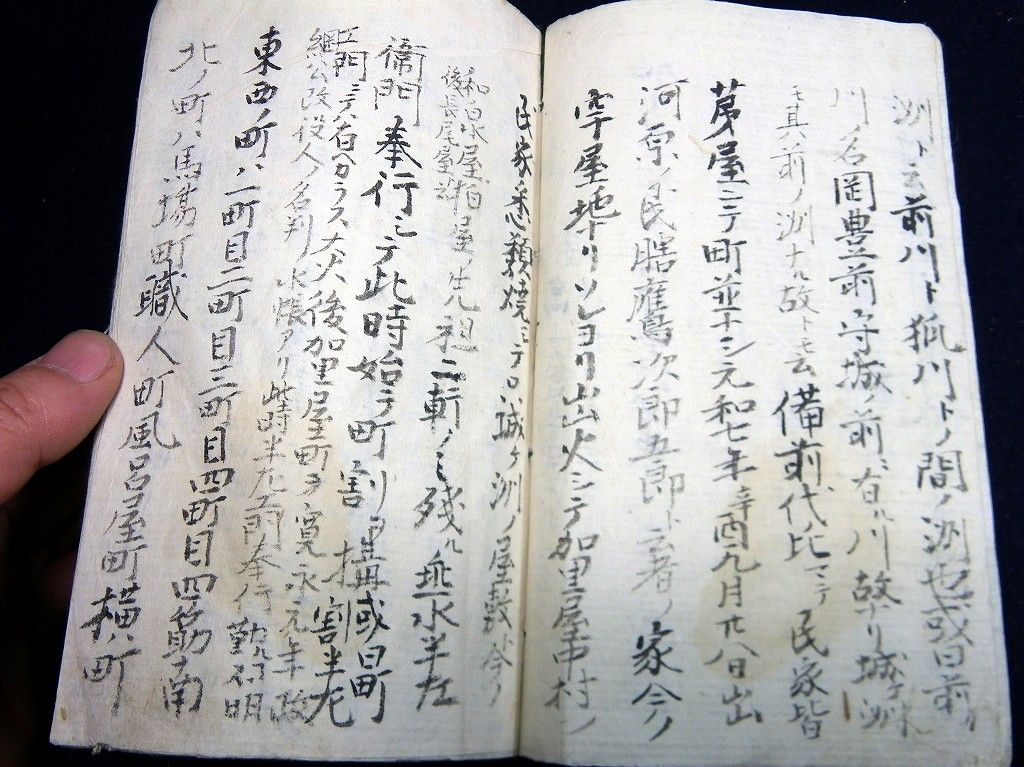 洲ト云前川ト狐川トノ間ノ洲也或曰前
川ノ名岡豊前守城ノ前ニ有ル川故ナリ城ケ洲
モ其前ノ洲ナル故トモ云備前代比マテ民家皆
茅屋ニテ町並ナシ元和七年辛酉九月廿八日出
河原ノ民瞎鷹次郎五郎ト云者ノ家今ノ
牢屋地ナリソレヨリ出火シテ加里屋中村ノ
民家悉類焼シテ口城ケ洲ノ屋敷ト今ノ
和泉屋
後長尾屋
先祖二軒ノミ残ル垂水半左
衛門奉行シテ此時始テ町割リヲ
或曰町
割半左
五門ニテハ有ヘカラス大火後加里屋町ヲ寛永元年政
綱公改役人ノ名判水帳アリ此時半左五門奉行勤
東西ノ町ハ一町目二町目三町目四町目四筋南
北ノ町ハ馬場町職人町風呂屋町横町